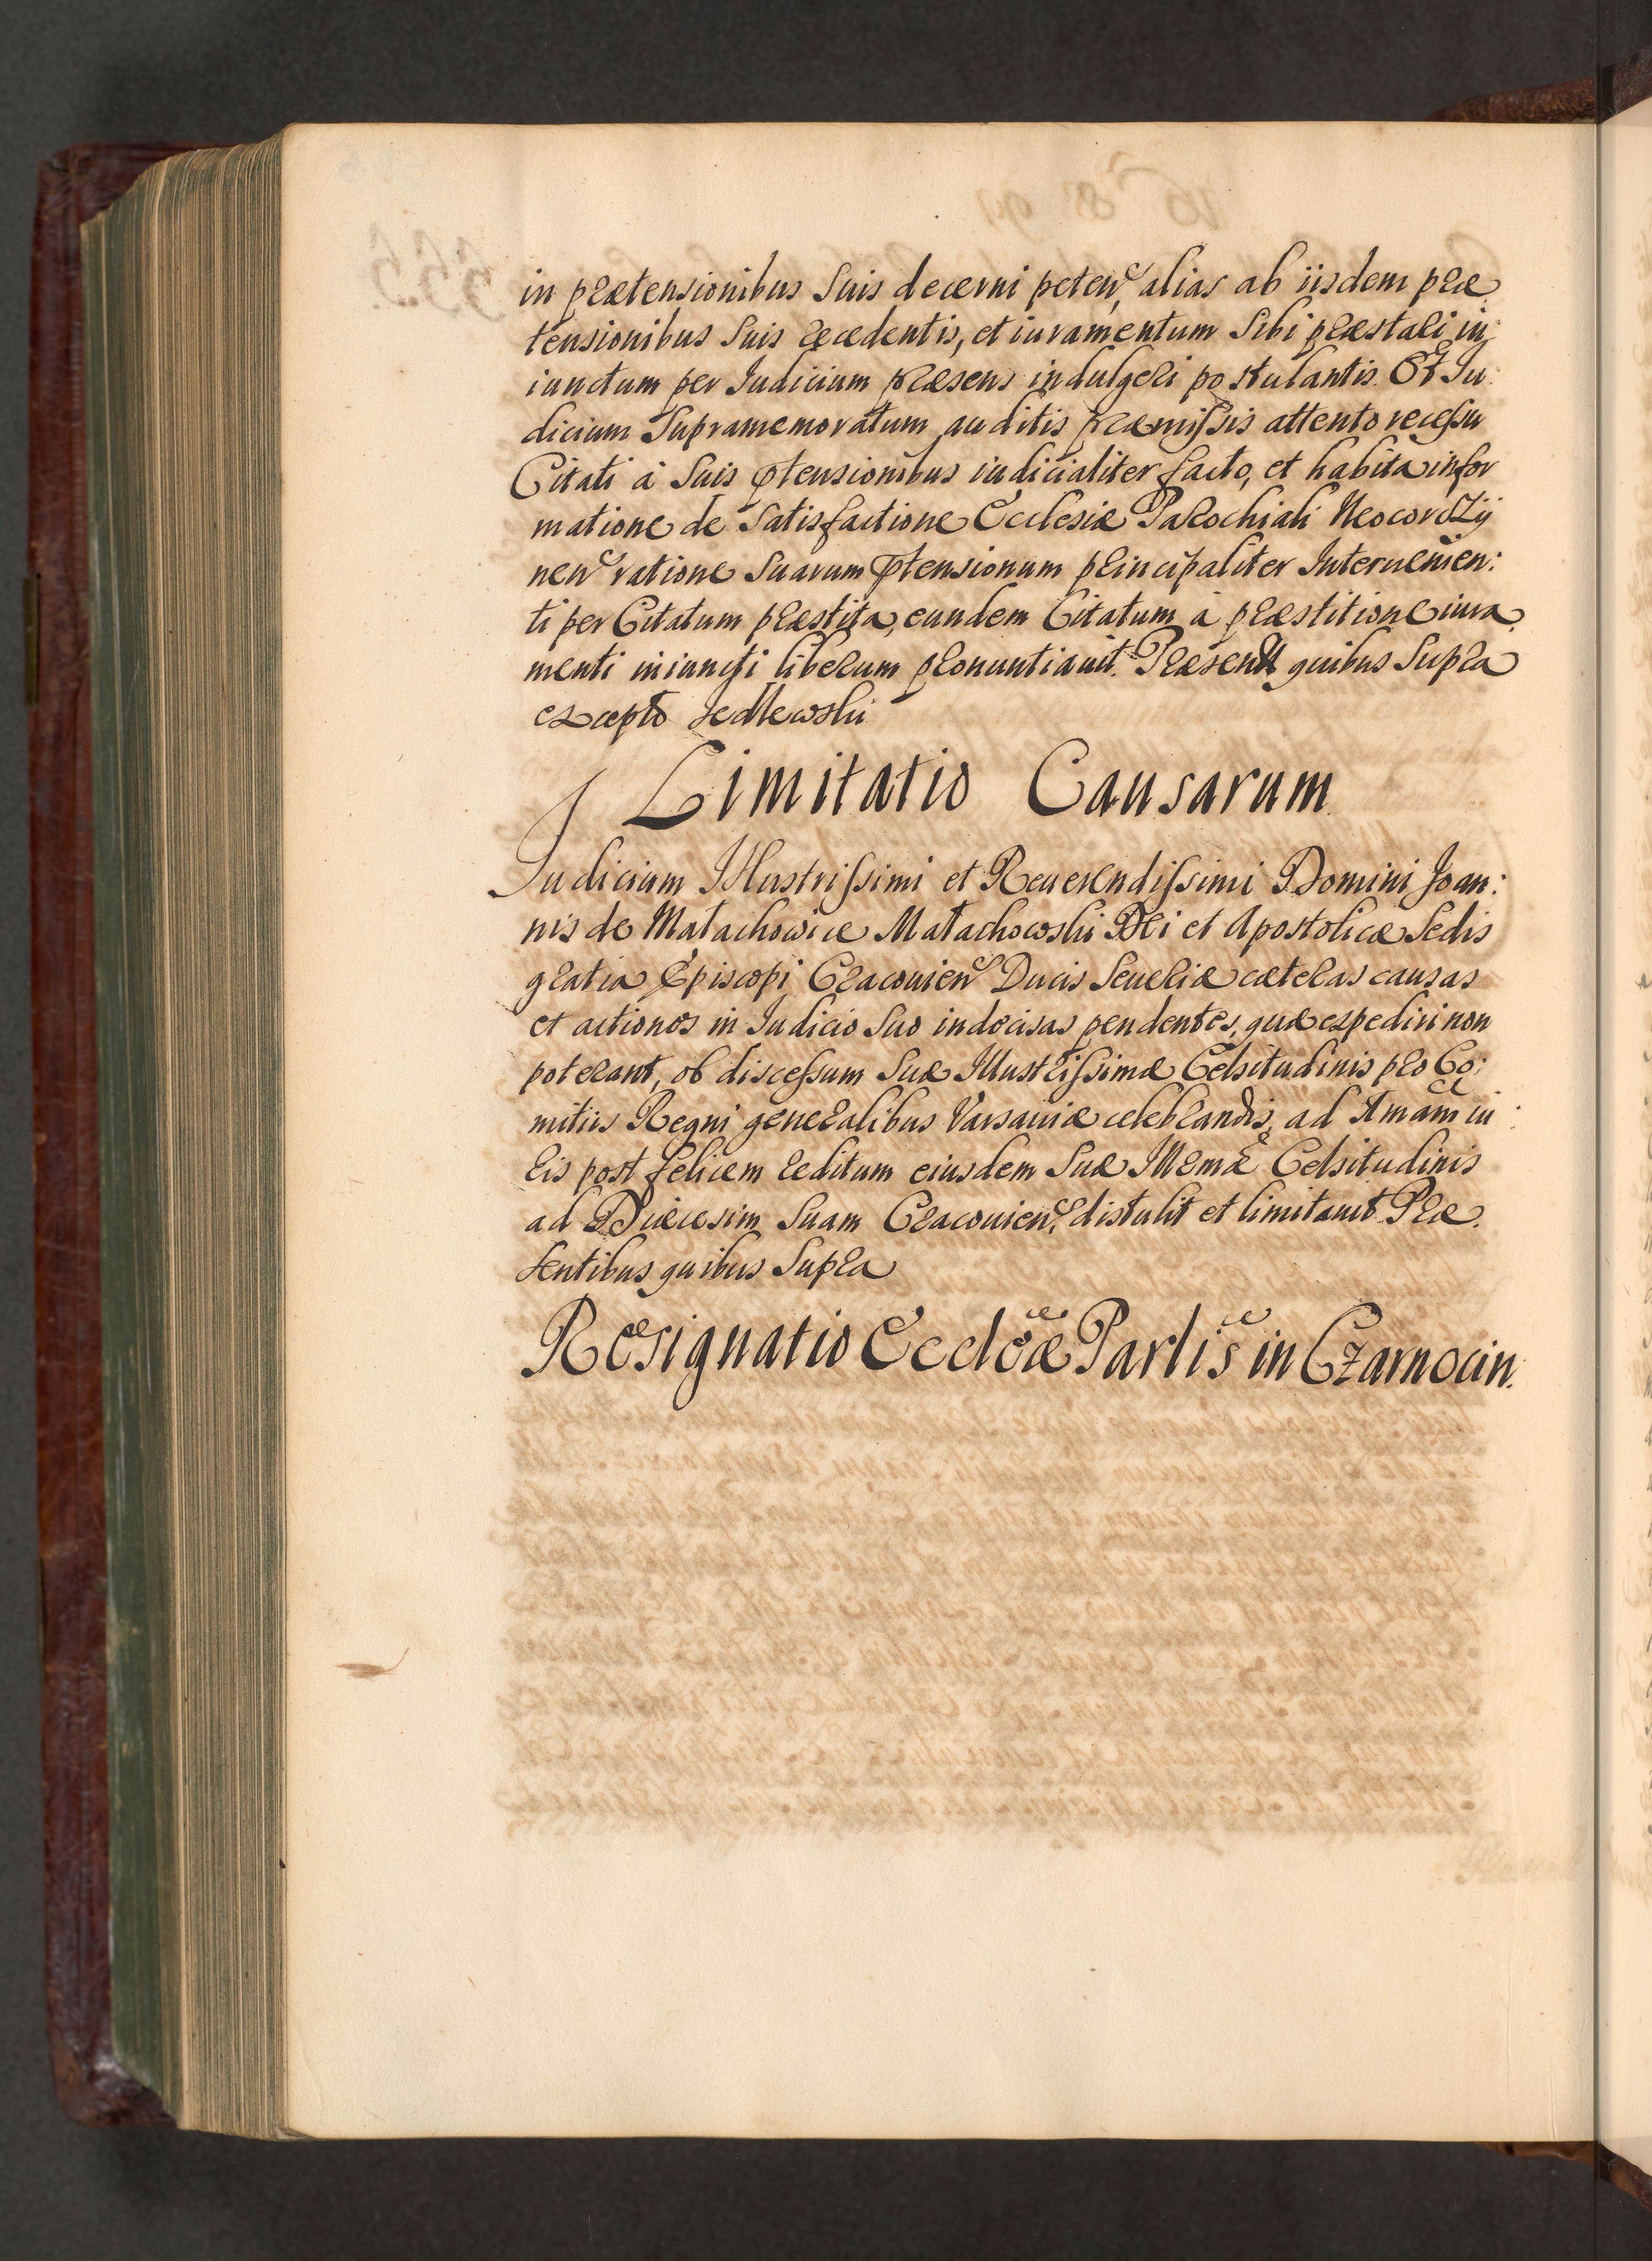 in prætensionibus Suis decerni peten, alias ab iisdem præ
tensionibus Suis recedentis, et iuramentum Sibi præstari in:
iunctum per Iudicium præsens indulgeri postulantis. Et Iu:
dicium Supramemoratum auditis præmissis attento recessu
Citati à Suis ptensionibus iudicialiter facto, et habita infor
matione de Satisfactione Ecclesiæ Parochiali Neocordzij
nen ratione Suarum ptensionum principaliter Interuenien:
ti per Citatum præstita, eundem Citatum à præstitione iura
menti iniuncti liberum pronuntiauit. Præsentt quibus Supra
excepto Jedlewski
Limitatio Causarum
Judicium Illustrissimi et Reuerendissimi Domini Joan:
nis de Małachowice Małachowski Dei et Apostolicæ Sedis
gratia Episcopi Cracouien Ducis Seueriæ cæteras causas
et actiones in Iudicio Suo indecisas pendentes, quæ expediri non
poterant, ob discessum Suæ Illustrissimæ Celsitudinis pro Co:
mitiis Regni generalibus Varsauiæ celebrandis, ad Amam iu:
ris post felicem reditum eiusdem Suæ Illrmæ Celsitudinis
ad Diæcesim Suam Cracouien, distulit et limitauit. Præ
sentibus quibus Supra
Resignatio Eccl'æ Parlis in Czarnocin.